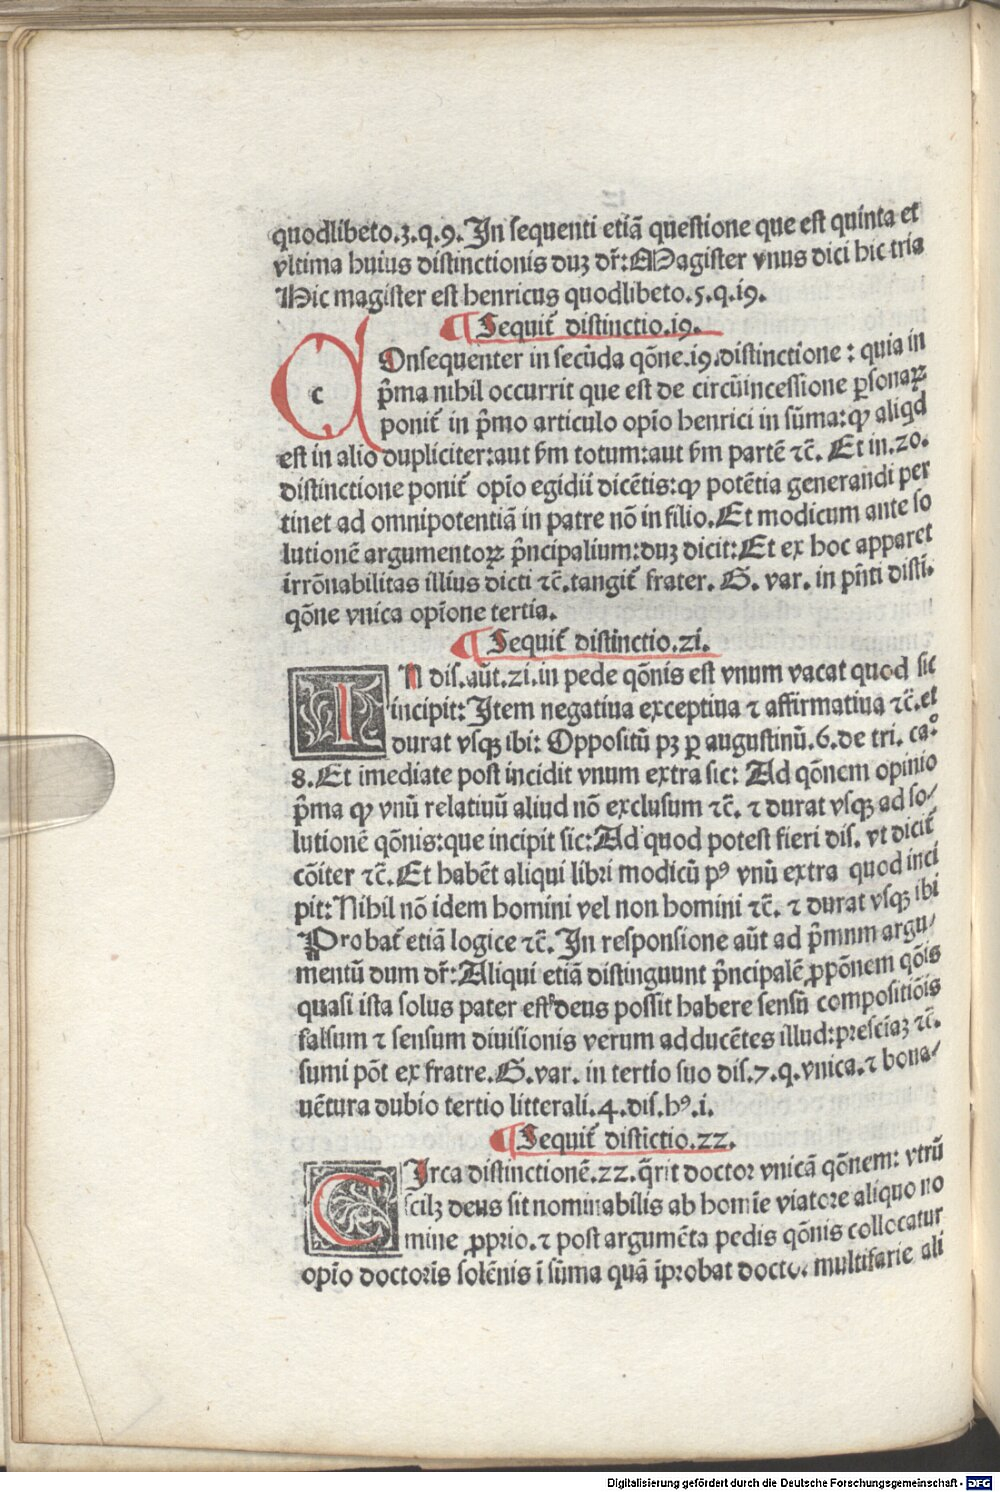 quodlibeto.3.q.9.In sequenti etiã questione que est quinta et
vltima huius distinctionis duʒ dr̃:Magister vnus dici hic tria
Hic magister est henricus quodlibeto.5.q.i9.
¶ Sequit̃ distinctio.i9.
c Onsequenter in secũda qõne.i9.distinctione : quia in
p̃ma nihil occurrit que est de circũincessione ꝑsonaꝝ
ponit̃ in p̃mo articulo opĩo henrici in sũma:ꝙ aliqd
est in alio dupliciter:aut s̃m totum:aut s̃m partẽ ⁊c̃. Et in.20.
distinctione ponit̃ opĩo egidii dicẽtis:ꝙ potẽtia generandi per
tinet ad omnipotentiã in patre nõ in filio.Et modicum ante so
lutionẽ argumentoꝝ p̃ncipalium:duʒ dicit:Et ex hoc apparet
irrõnabilitas illius dicti ⁊c̃.tangit̃ frater. G. var. in pñti disti.
qõne vnica opĩone tertia.
¶ Sequit̃ distinctio.2i.
I N dis.aũt.2i.in pede qõnis est vnum vacat quod sic
incipit: Item negatiua exceptiua ⁊ affirmatiua ⁊c̃.et
durat vsqʒ ibi: Oppositũ pʒ ꝑ augustinũ.6.de tri. ca°
8.Et imediate post incidit vnum extra sic: Ad qõnem opinio
p̃ma ꝙ vnũ relatiuũ aliud nõ exclusum ⁊c̃. ⁊ durat vsqʒ ad so/
lutionẽ qõnis:que incipit sic:Ad quod potest fieri dis. vt dicit̃
cõiter ⁊c̃.Et habẽt aliqui libri modicũ pꝰ vnũ extra quod inci
pit:Nihil nõ idem homini vel non homini ⁊c̃. ⁊ durat vsqʒ ibi
Probat̃ etiã logice ⁊c̃.In responsione aũt ad p̃mnm argu/
mentũ dum dr̃:Aliqui etiã distinguunt p̃ncipalẽ ꝓpõnem qõis
quasi ista solus pater est deus possit habere sensũ compositiõis
falsum ⁊ sensum diuisionis verum adducẽtes illud:presciaʒ ⁊c̃.
sumi põt ex fratre.G.var. in tertio suo dis.7.q.vnica.⁊ bona/
uẽtura dubio tertio litterali.4.dis.hꝰ.i.
¶ Sequit̃ distictio.22.
C Irca distinctionẽ.22.q̃rit doctor vnicã qõnem: vtrũ
scilʒ deus sit nominabilis ab homĩe viatore aliquo no
mine ꝓprio.⁊ post argumẽta pedis qõnis collocatur
opĩo doctoris solẽnis ĩ sũma quã ĩprobat doctor multifarie ali
Digitalisierung gefördert durch die Deutsche Forschungsgemeinschaft - DFG